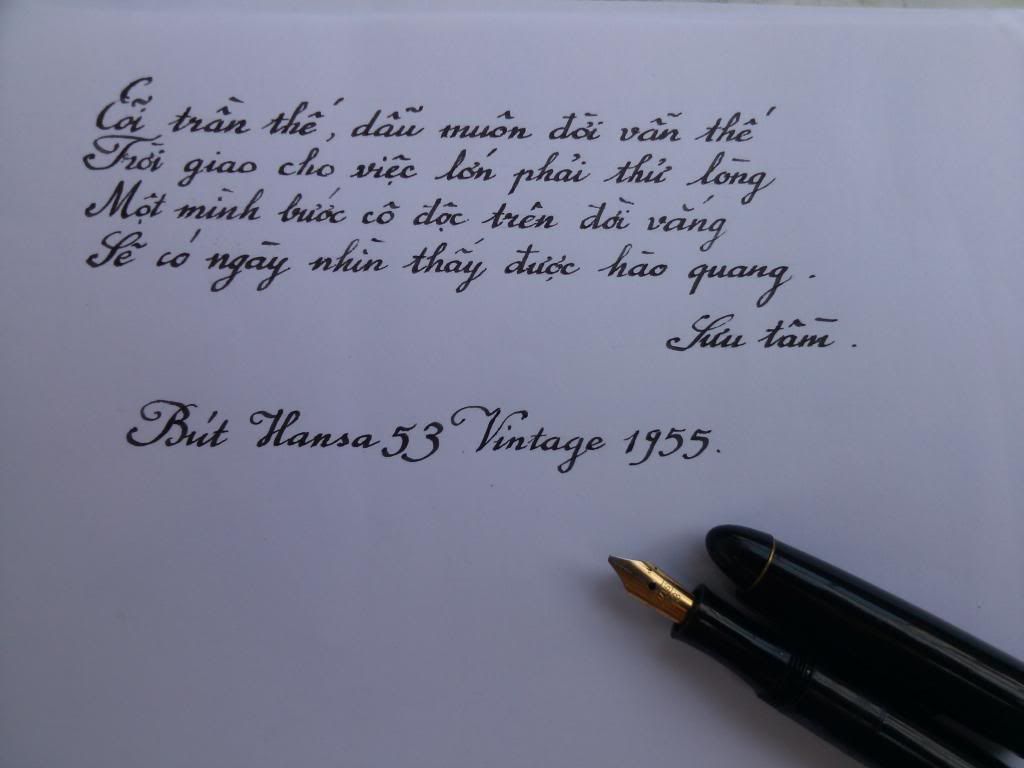 Cõi trần thế, dẫu muôn đời vẫn thế
Trời giao cho việc lớn phải thử lòng
Một mình bước cô độc trên đời vắng
Sẽ có ngày nhìn thấy được hào quang .
Sưu tầm .
Bút Hansa 53 Vintage 1955.